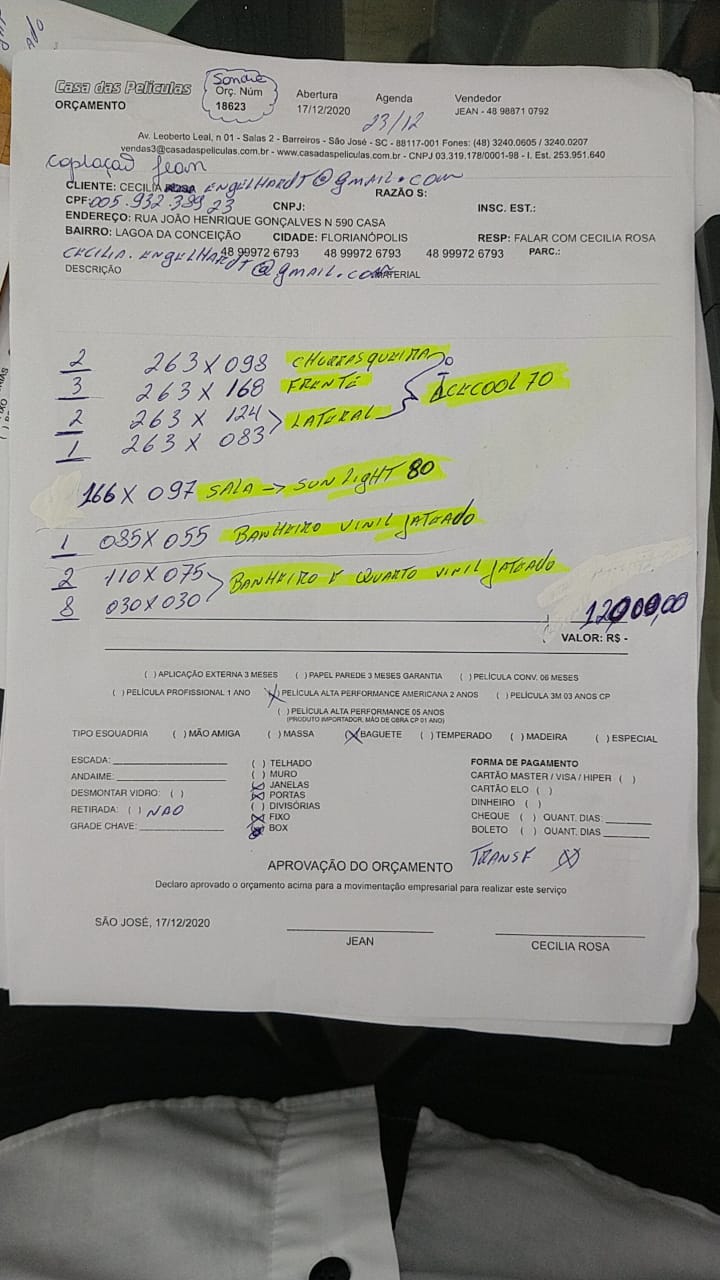 Casa das Películas
ORÇAMENTO
Sondre
Orç. Núm
18623
Abertura
17/12/2020
Agenda
23/12
Vendedor
JEAN - 48 98871 0792
Av. Leoberto Leal, n 01 - Salas 2 - Barreiros - São José - SC - 88117-001 Fones: (48) 3240.0605 / 3240.0207
vendas3@casadaspeliculas.com.br - www.casadaspeliculas.com.br - CNPJ 03.319.178/0001-98 - I. Est. 253.951.640
Jean
CLIENTE: CECILIA ROSA ENGELHARDT@gmail.com RAZÃO S:
CPF: 005.932.389 23 CNPJ: INSC. EST.:
ENDEREÇO: RUA JOÃO HENRIQUE GONÇALVES N 590 CASA
BAIRRO: LAGOA DA CONCEIÇÃO CIDADE: FLORIANÓPOLIS RESP: FALAR COM CECILIA ROSA
48 99972 6793 48 99972 6793 48 99972 6793 PARC.:
CECILIA.ENGELHARDT@gmail.com
DESCRIÇÃO MATERIAL
2 263 X 098 CHURRASQUEIRA
3 263 X 168 FRENTE
ICECOOL 70
2 263 X 124 LATERAL
1 263 X 083
166 X 097 SALA -> SUN LIGHT 80
1 085 X 055 BANHEIRO VINIL JATEADO
2 110 X 075 BANHEIRO E QUARTO VINIL JATEADO
8 030 X 030
12000,00
VALOR: R$ -
( ) APLICAÇÃO EXTERNA 3 MESES ( ) PAPEL PAREDE 3 MESES GARANTIA ( ) PELÍCULA CONV. 06 MESES
( ) PELÍCULA PROFISSIONAL 1 ANO (X) PELÍCULA ALTA PERFORMANCE AMERICANA 2 ANOS ( ) PELÍCULA 3M 03 ANOS CP
( ) PELÍCULA ALTA PERFORMANCE 05 ANOS
(PRODUTO IMPORTADOR, MÃO DE OBRA CP 01 ANO)
TIPO ESQUADRIA ( ) MÃO AMIGA ( ) MASSA (X) BAGUETE ( ) TEMPERADO ( ) MADEIRA ( ) ESPECIAL
ESCADA:
ANDAIME:
DESMONTAR VIDRO: ( )
RETIRADA: ( ) NAO
GRADE CHAVE:
( ) TELHADO
( ) MURO
(X) JANELAS
(X) PORTAS
( ) DIVISÓRIAS
(X) FIXO
(X) BOX
FORMA DE PAGAMENTO
CARTÃO MASTER / VISA / HIPER ( )
CARTÃO ELO ( )
DINHEIRO ( )
CHEQUE ( ) QUANT. DIAS:
BOLETO ( ) QUANT. DIAS
TRANSF (X)
APROVAÇÃO DO ORÇAMENTO
Declaro aprovado o orçamento acima para a movimentação empresarial para realizar este serviço
SÃO JOSÉ, 17/12/2020
JEAN
CECILIA ROSA